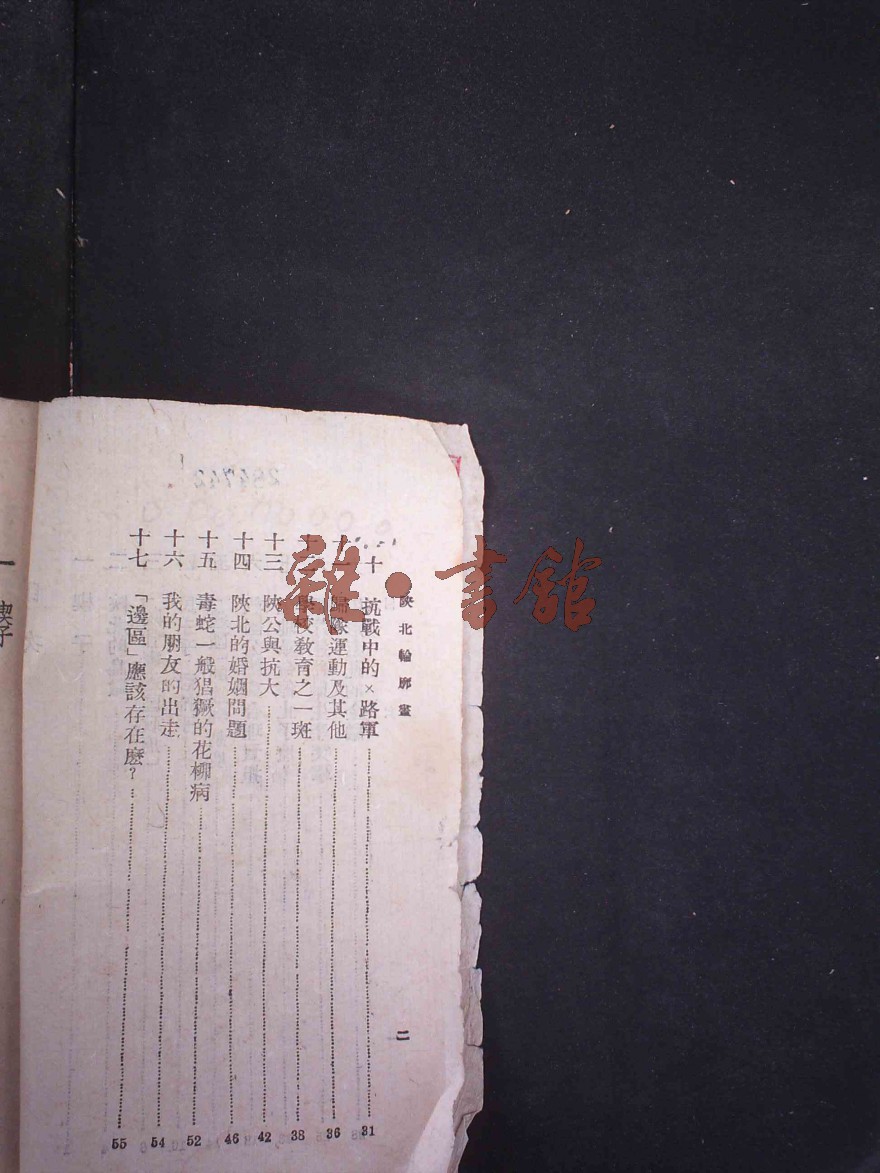 陝北輪廓畫
二
十 抗戰中的×路軍 31
十一 歸隊運動及其他 36
十二 學校教育之一斑 38
十三 陝公與抗大 42
十四 陝北的婚姻問題 46
十五 毒蛇一般猖獗的花柳病 52
十六 我的朋友的出走 54
十七 「邊區」應該存在麽？ 55
一 楔子
雜·書館